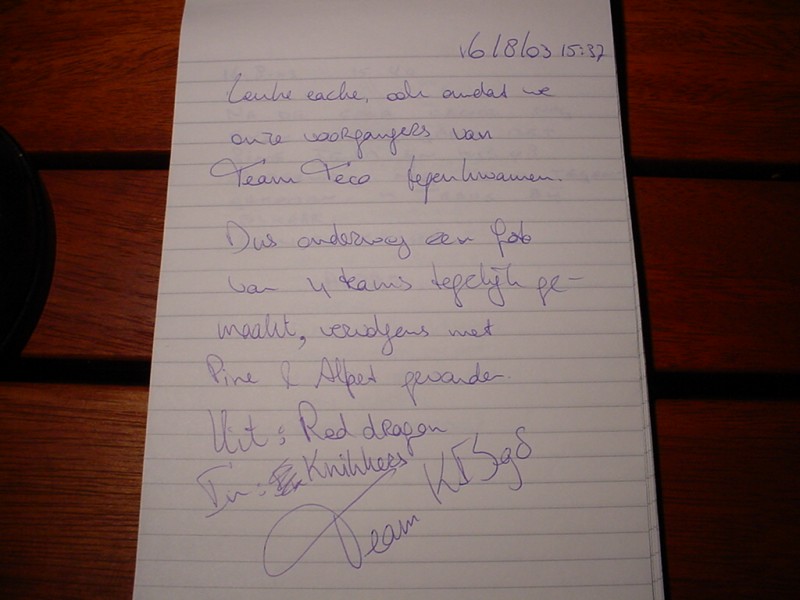 16/8/03 15:37
Leuke cache, ook omdat we
onze voorgangers van
Team Teco tegenkwamen.
Dus onderweg een foto
van 4 teams tegelijk ge-
maakt, vervolgens met
Pine & Alpet gevonden.
Uit: Red dragon
In: Knikkers
Team